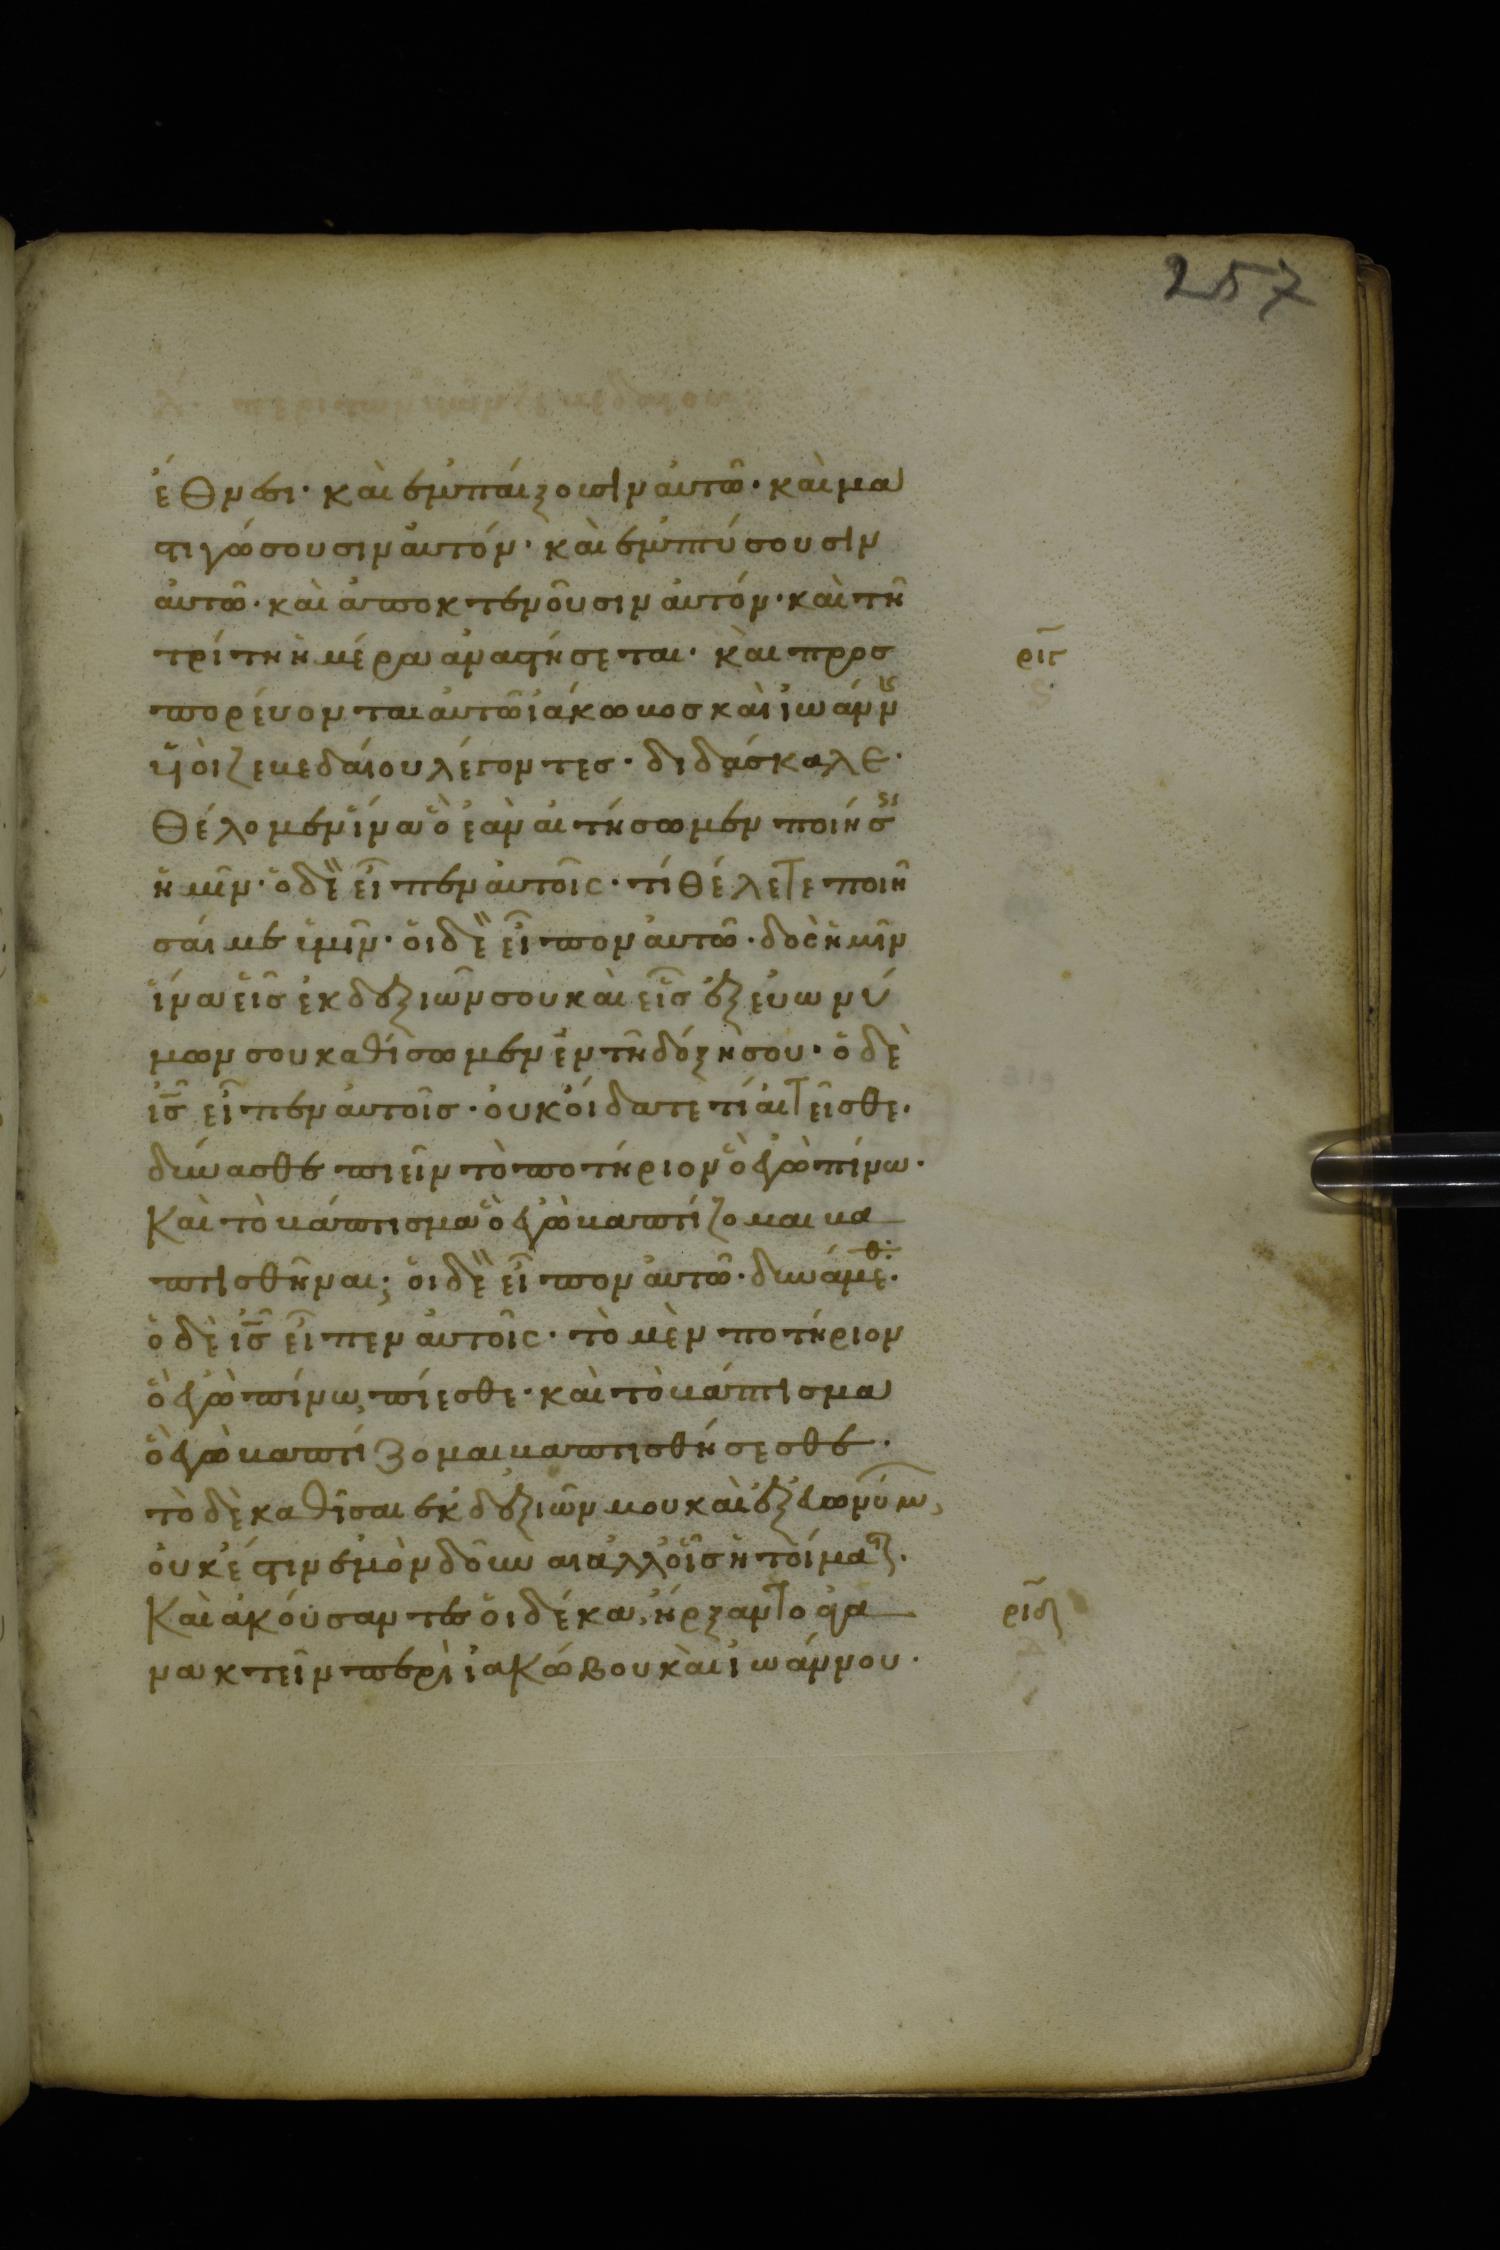 257
ἔθνεσι· καὶ ἐμπαίξουσιν αὐτῶ· καὶ μα
στιγώσουσιν αὐτόν· καὶ ἐμπτύσουσιν
αὐτῶ· καὶ ἀποκτενοῦσιν αὐτόν· καὶ τῆ
τρίτη ἡμέρα ἀναστήσεται· καὶ προσ
ριγ
πορεύονται αὐτῶ ἰάκωβοσ καὶ ἰωάνν
ὑϊοὶ ζεβεδαίου λέγοντεσ· διδάσκαλε·
θέλομεν ἵνα ὃ ἐὰν αιτήσωμεν ποιήσ
ἡμῖν· ὁ δὲ εἶπεν αὐτοῖς· τί θέλετε ποιῆ
σαί με ὑμῖν· ὁι δὲ εἶπον αὐτῶ· δὸς ἡμῖν
ἵνα εἷσ ἐκ δεξιῶν σου καὶ εἷσ ἐξ ευωνύ
μων σου καθίσωμεν ἐν τῆ δόξη σου· ὁ δὲ
ἰς εἶπεν αὐτοῖσ· ὀυκ ὀίδατε τί ἀιτεῖσθε·
δύνασθε πιεῖν τὸ ποτήριον ὃ ἐγὼ πίνω·
Καὶ τὸ βάπτισμα ὃ ἐγὼ βαπτίζομαι βα
πτισθῆναι; ὁι δὲ εἶπον αὐτῶ· δυνάμεθ·
ὁ δὲ ἰς εἶπεν αὐτοῖς· τὸ μὲν ποτήριον
ὃ ἐγὼ πίνω, πίεσθε· καὶ τὸ βάπτισμα
ὃ ἐγὼ βαπτίζομαι βαπτισθήσεσθε·
τὸ δὲ καθῖσαι ἐκ δεξιῶν μου καὶ ἐξ ἐυωνύμω,
ὀυκ έστιν ἐμὸν δοῦναι ἀλλ' ὁῖσ ἡτοίμαστ·
Καὶ ἀκούσαντεσ ὁι δέκα, ἤρξαντο ἀγα
ριδ
νακτεῖν περὶ ἰακώβου καὶ ἰωάννου·